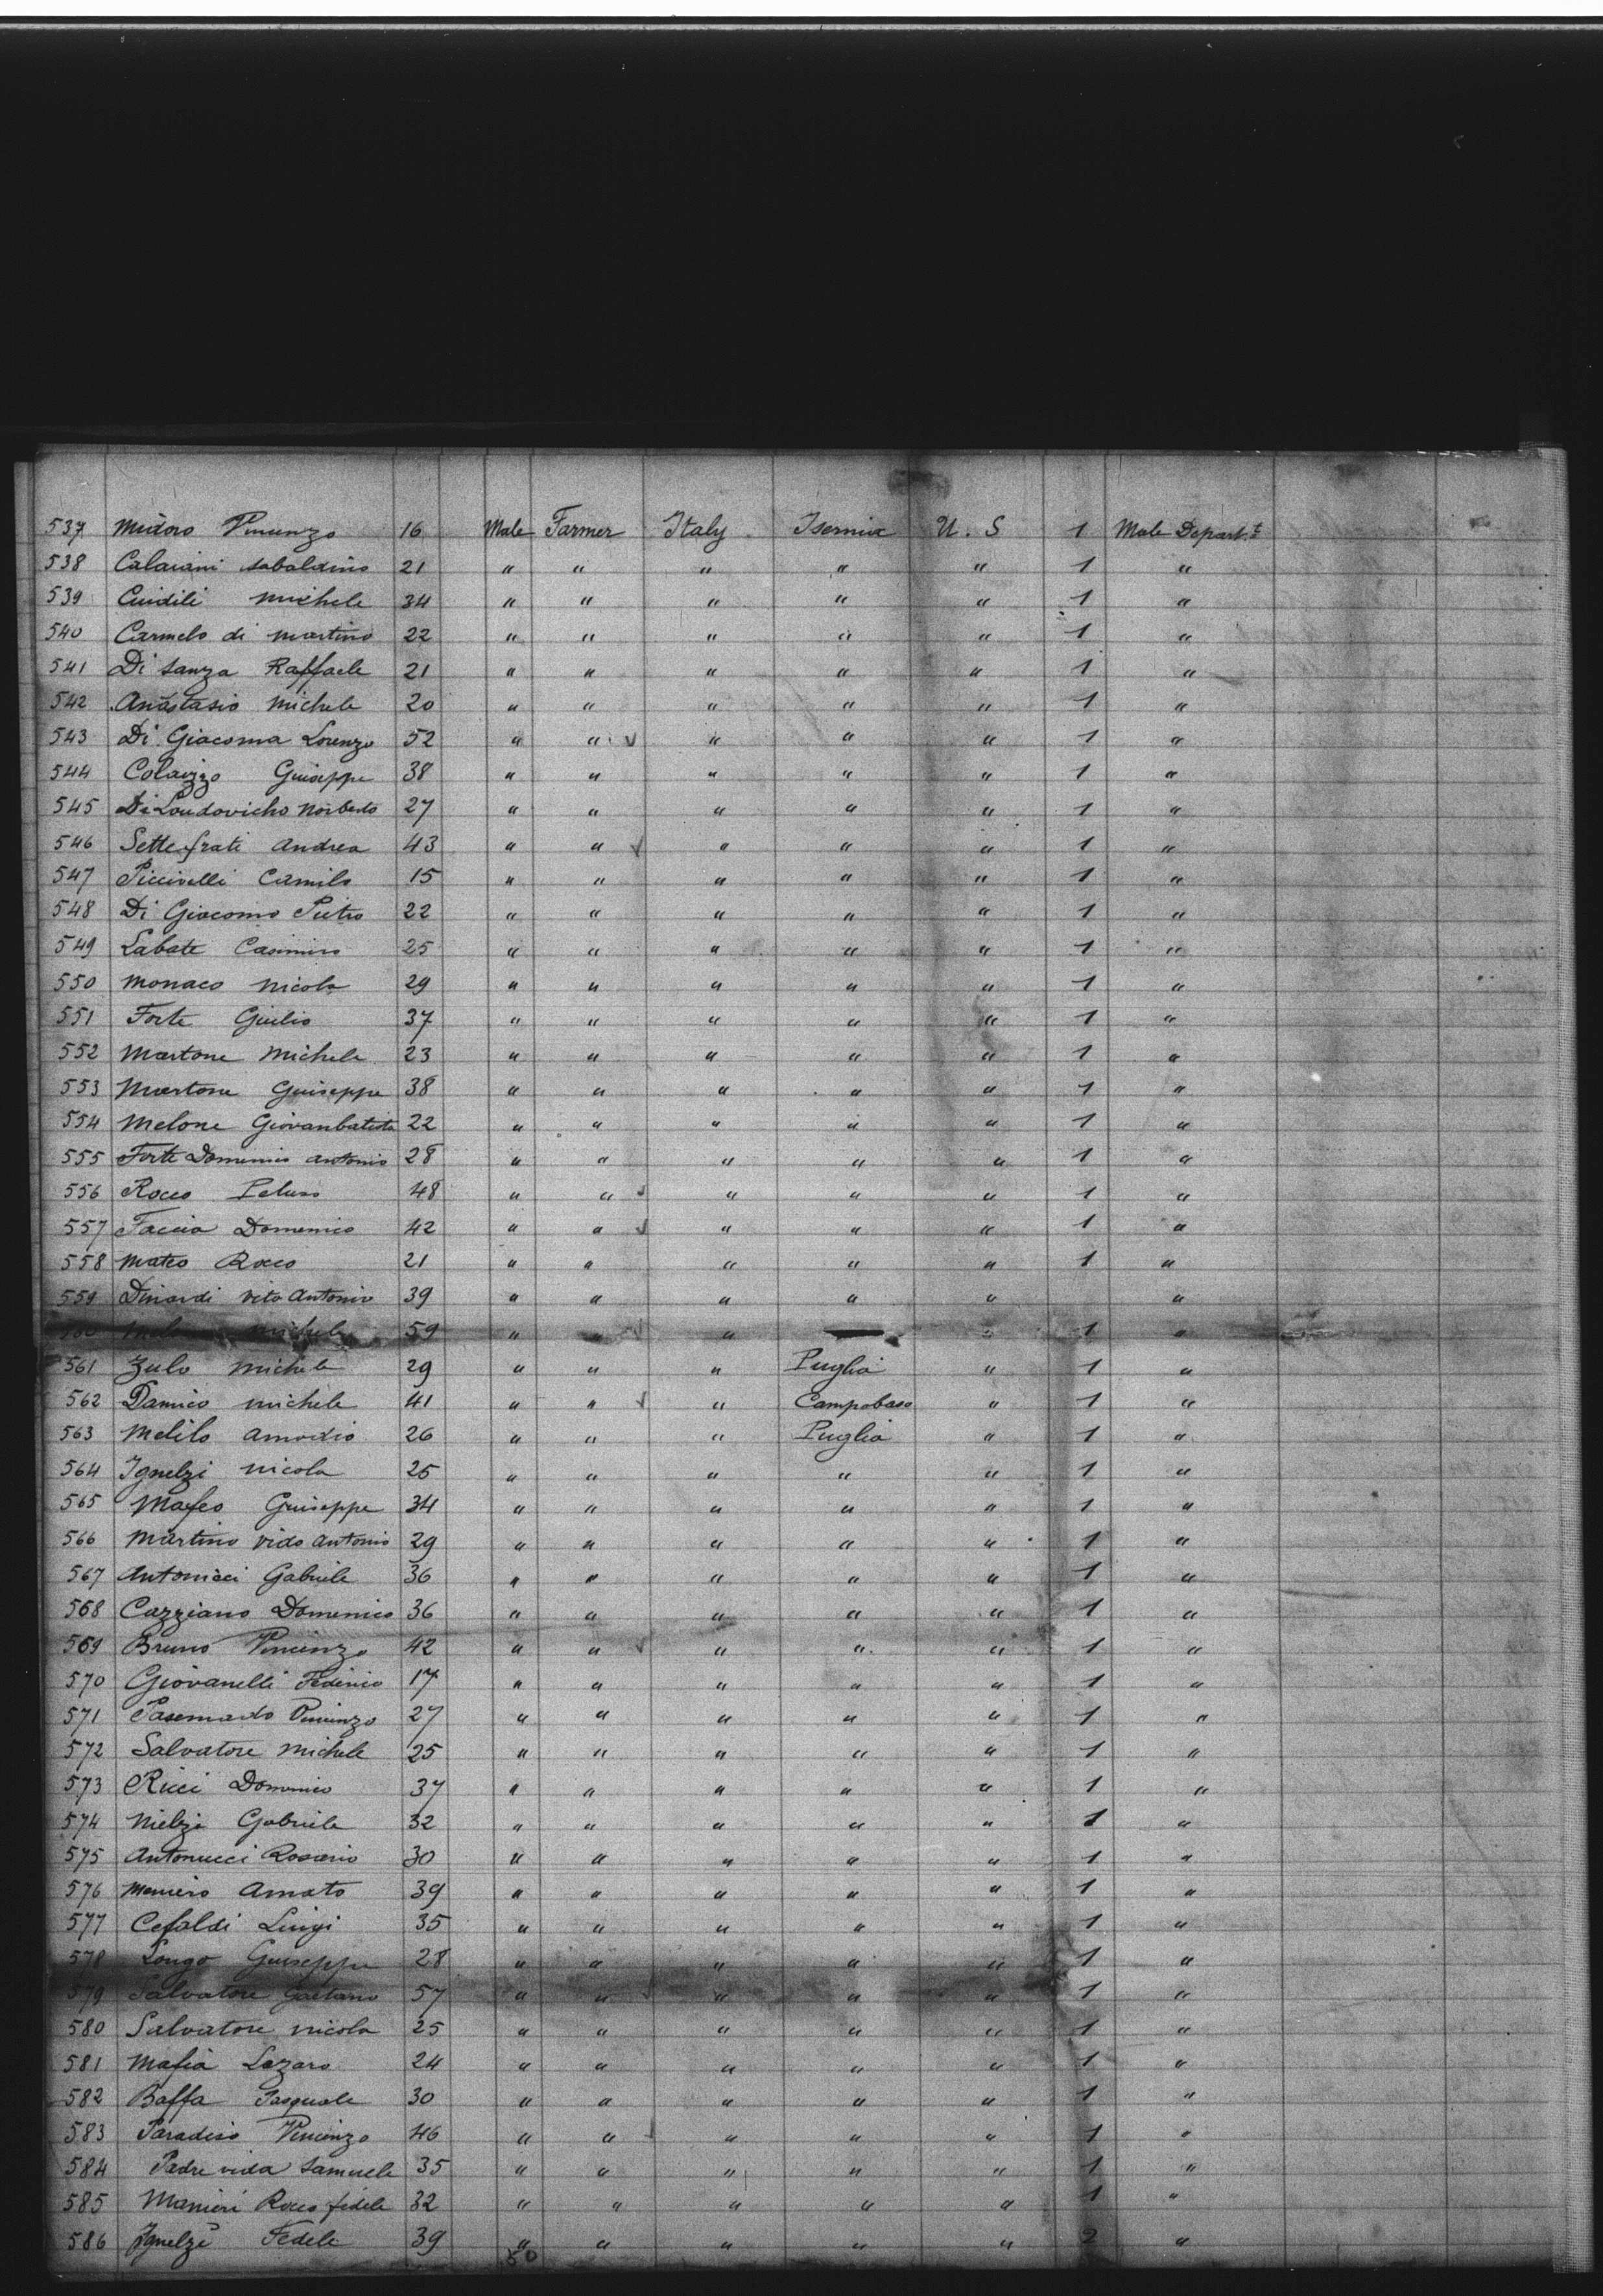 537 Midoro Vincenzo 16 Male Farmer Italy Isernia U. S 1 Male Depart.t
538 Calaiani Sabaldino 21 " " " " " 1 "
539 Cuidili Michele 34 " " " " " 1 "
540 Carmelo di Martino 22 " " " " " 1 "
541 Di Sanza Raffaele 21 " " " " " 1 "
542 Anastasio Michele 20 " " " " " 1 "
543 Di Giacoma Lorenzo 52 " " ✓ " " " 1 "
544 Colaizzo Guiseppe 38 " " " " " 1 "
545 Di Loudovicho Norberto 27 " " " " " 1 "
546 Settefrati Andrea 43 " " ✓ " " " 1 "
547 Piccirelli Camilo 15 " " " " " 1 "
548 Di Giacomo Pietro 22 " " " " " 1 "
549 Labate Casimiro 25 " " " " " 1 "
550 Monaco Nicola 29 " " " " " 1 "
551 Forte Giulio 37 " " " " " 1 "
552 Martone Michele 23 " " " " " 1 "
553 Martone Guiseppe 38 " " " " " 1 "
554 Melone Giovanbatista 22 " " " " " 1 "
555 Forte Domenico Antonio 28 " " " " " 1 "
556 Rocco Peluso 48 " " ✓ " " " 1 "
557 Faccia Domenico 42 " " ✓ " " " 1 "
558 Mateo Rocco 21 " " " " " 1 "
559 Dinardi Vito Antonio 39 " " " " " "
Michele 59 " " ✓ " " 1 "
561 Zulo Michele 29 " " " Puglia " 1 "
562 Damico Michele 41 " " ✓ " Campobaso " 1 "
563 Melilo Amodio 26 " " " Puglia " 1 "
564 Ignelzi Nicola 25 " " " " " 1 "
565 Mafeo Guiseppe 34 " " " " " 1 "
566 Martino Vido Antonio 29 " " " " " 1 "
567 Antonicci Gabriele 36 " " " " " 1 "
568 Cazziano Domenico 36 " " " " " 1 "
569 Bruno Vincinzo 42 " " ✓ " " " 1 "
570 Giovanelli Federico 17 " " " " " 1 "
571 Pasemardo Vincinzo 27 " " " " " 1 "
572 Salvatore Michele 25 " " " " " 1 "
573 Ricci Domenico 37 " " " " " 1 "
574 Nielzi Gabriele 32 " " " " " 1 "
575 Antonucci Rosario 30 " " " " " 1 "
576 Maniero Amato 39 " " " " " 1 "
577 Cefaldi Luigi 35 " " " " " 1 "
578 Longo Guiseppe 28 " " " " " 1 "
579 Salvatore Gaetano 57 " " " " " 1 "
580 Salvatore Nicola 25 " " " " " 1 "
581 Mafia Lazaro 24 " " " " " 1 "
582 Baffa Pasquale 30 " " " " " 1 "
583 Paradiso Vincinzo 46 " " ✓ " " " 1 "
584 Padre vida Samuele 35 " " " " " 1 "
585 Manieri Rocco fidele 32 " " " " " 1 "
586 Ignelzi Fedele 39 " " " " " 2 "
50